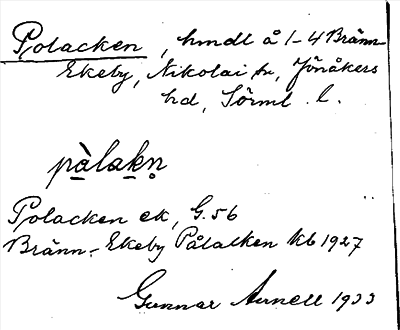 Polacken, hmdl å 1-4 Bränn-
Ekeby, Nikolai sn, Jönåkers
hd, Sörml. l.
pàlakn̥
Polacken ek, G.56
Bränn-Ekeby Pålacken kb 1927
Gunnar Arnell 1933